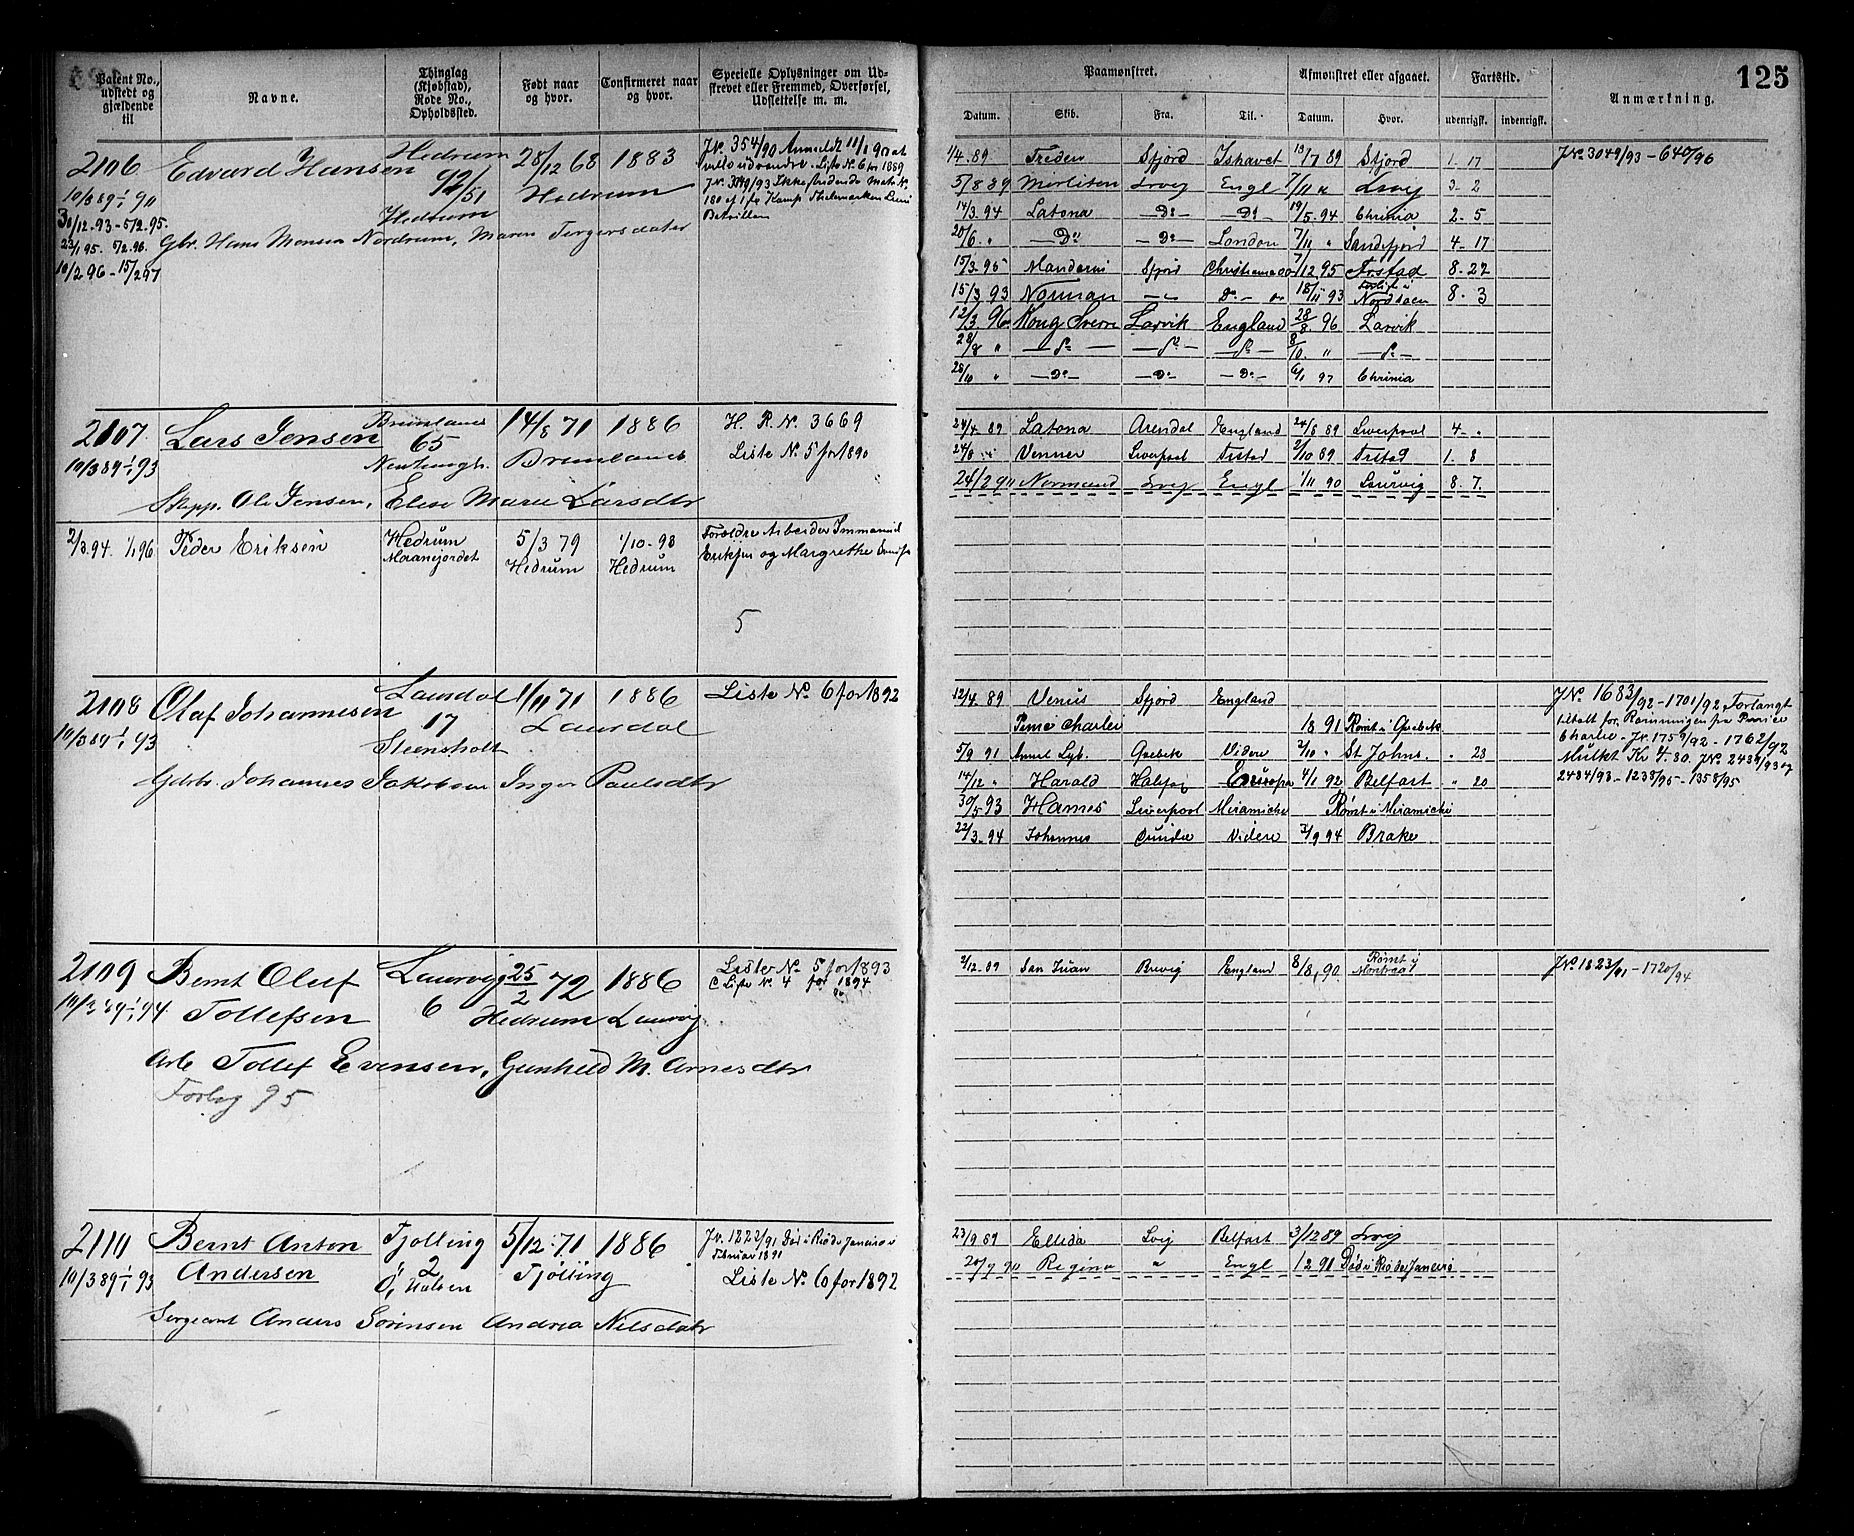 125
Patent No., udstedt og gjældende til
Navne.
Thinglag (Kjøbstad), Rode No., Opholdssted.
Født naar og hvor.
Confirmeret naar og hvor.
Specielle Oplysninger om Udskrevet eller Fremmed, Overførsel, Udslettelse m. m.
Paamønstret.
Afmønstret eller afgaaet.
Fartstid.
Anmærkning.
Datum. Skib. Fra. Til. Datum. Hvor. udenrigsk. indenrigsk.
2106 Edvard Hansen Hedrum 28/12 68 1883
92/51 Hedrum
Hedrum
10/3 89 1/1 90
30/12.93 - 5/2.95.
22/1 95. 5/2.96. Gbr. Hans Monsen Nordrum, Maren Torgersdater
10/2 96 - 15/2 97
JN. 354/90 Anmeldt 11/1 90 at
Liste N. 6 for 1889
JN. 3049/93 Ikkestridende
1/4.89. Freden Sfjord Ishavet 19/7 89 Sfjord 1. 17 JN. 3049/93 - 640/96
5/8 89 Lvig Engl 7/11 " Lvig 3. 2
14/3.94 Latona -Do- -Do- 19/5.94 Chrinia 2. 5
20/6. " -Do- -Do- London 7/11 " Sandefjord 4-17
15/3.95 Sfjord 7/12 95 8.22
15/3 93 Norman 18/11 93 Forlist i Nordsøen 8. 3
12/3 96. Kong Sverre Larvik England 28/8 96 Larvik
28/8 " -Do- -Do- -Do- 8/10. " -Do-
28/10 " -Do- -Do- -Do- 6/1 97 Chrinia
2107 Lars Jensen Brunlanes 14/8 71 1886 H. R. N. 3669
65
10/3 89 1/1 93 Brunlanes Liste N. 5 for 1890
Skipp. Ole Jensen, Elise Marie Larsdtr
24/4 89 Latona Arendal England 24/8 89 Liverpool 4- "
24/8 " Venner Liverpool Fr.stad 2/10 89 Fr.stad 1. 8
24/2 90 Normand Lvig Engl 1/11 90 Laurvig 8. 7.
2/3.94. 1/1 96 Peder Eriksen Hedrum 5/3 79 1/10-93 Forældre Arbeider Immanuel
Hedrum Hedrum Eriksen og Margrethe
5
2108 Olaf Johannesen Laurdal 1/11 71 1886 Liste No. 6 for 1892
17 Laurdal
10/3 89 1/1 93 Steensholt
Gdbr. Johannes Jakobsen Inger Paulsdtr
12/4. 89 Venus Sfjord England JN. 1683/92 - 1701/92 Forlangt
Charlie 18 91 Rømt i Quebek
5/9 91 Quebek Videre 2/10 " St Johns " 23
14/12 " Harald Europa 4/1 92 Belfast " 20
30/5 93 Hannes Liverpool Miramichi Rømt i Miramichi
22/3. 94 Johannes Videre 2/9 94 Brake
Charlie - JN. 1759/92 - 1762/92
Mulkt Kr 4.80. JN. 2434/93 og
2484/93 - 1238/95 - 1358/95
2109 Bernt Oluf Laurvig 25/2 72 1886 Liste No. 5 for 1893
Tollefsen 6 Hedrum Laurvig C Liste N. 4 for 1894
10/3 89 1/1 94
Arb Tollef Evensen, Gunhild M. Arnesdtr
Forbig 95
2/12. 89 San Juan Brevig England 8/8, 90. Rømt i Montreal JN. 1823/91 - 1720/94
2110 Bernt Anton Tjølling 5/12 71 1886 JN. 1222/91 Død i Rio de Janeiro i Februar 1891
Andersen 2 Tjølling
10/3 89 1/1 93 Liste No. 6 for 1892
Sergeant Anders Sørensen Andrea Nilsdatr
23/9 89 Ellida Lvig Belfast 3/12 89 Lvig
20/9 90 Regina " Engl 1 2 91 Død i Rio de Janeiro